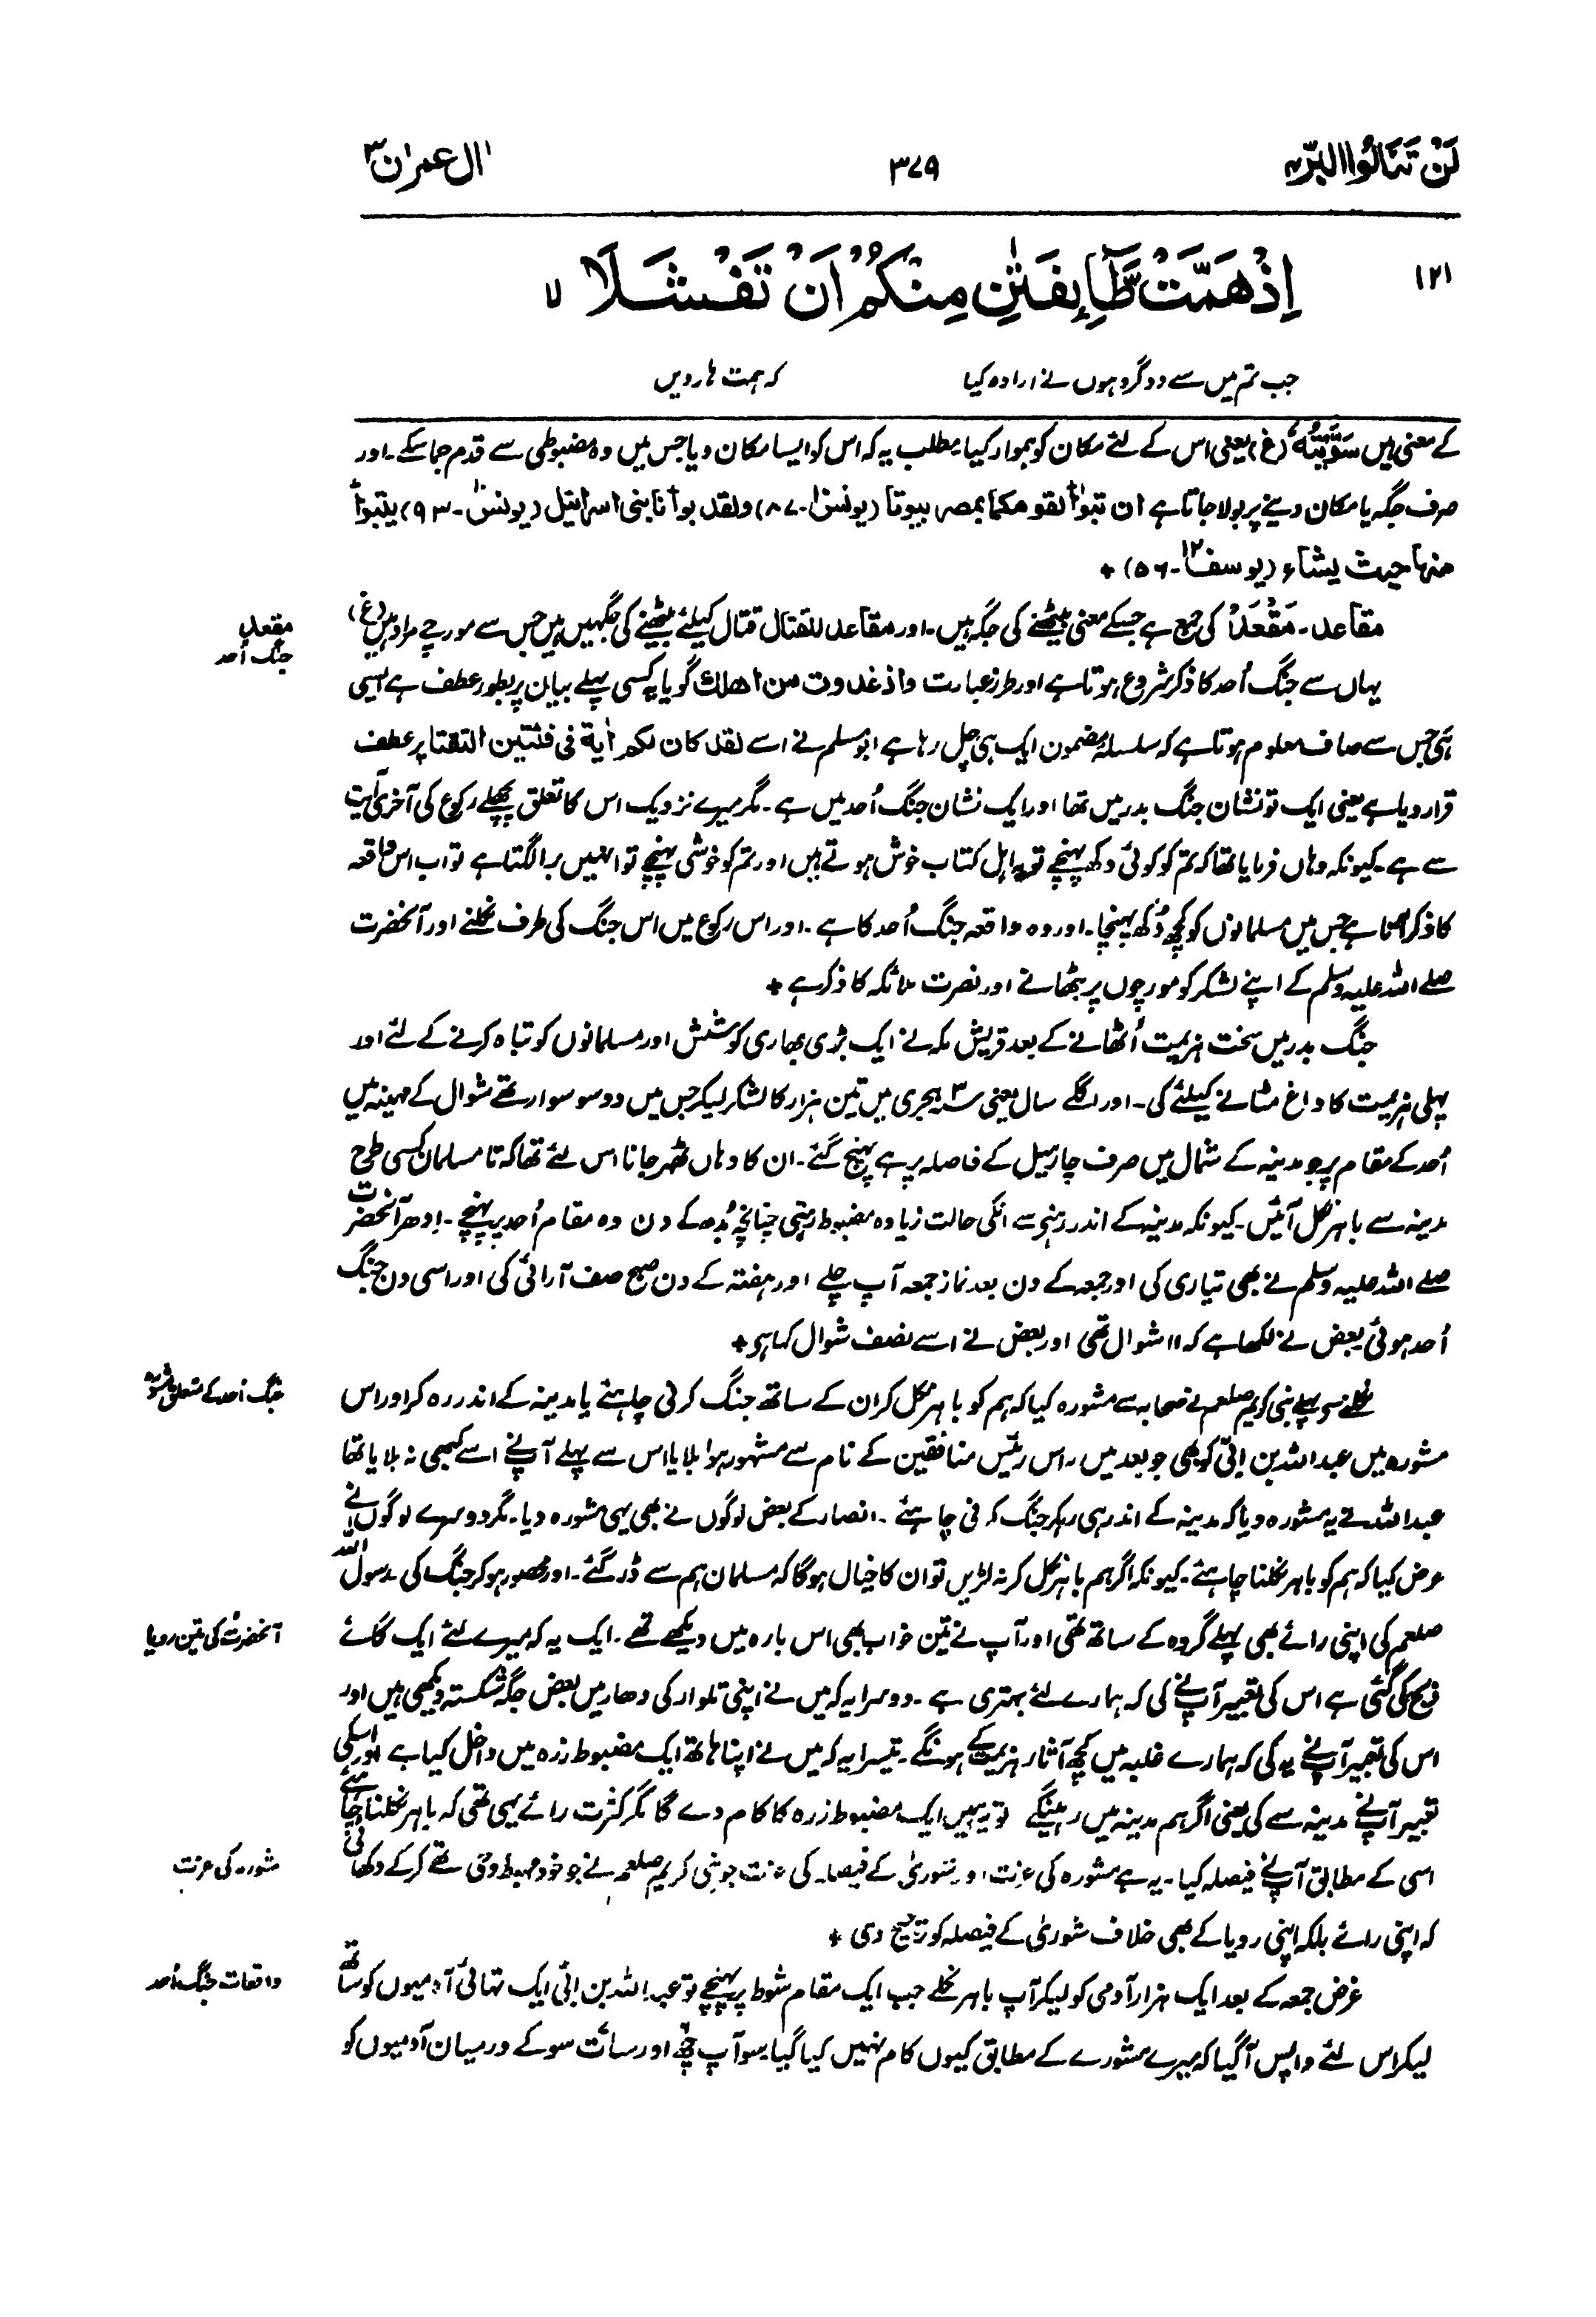 لَنْ تَنَالُوا الْبِرَّ ۴
۳۷۹
اٰل عمرٰن ۳
۱۲۱
اِذْ هَمَّتْ طَّآئِفَتٰنِ مِنْكُمْ اَنْ تَفْشَلَا ۙ
جب تم میں سے دو گروہوں نے ارادہ کیا
کہ ہمت ہار دیں
کے معنی ہیں سَوَّیْتُہٗ (غ) یعنی اس کے لئے مکان کو ہموار کیا۔ مطلب یہ کہ اس کو ایسا مکان دیا جس میں وہ مضبوطی سے قدم جما سکے۔ اور
صرف جگہ یا مکان دینے پر بولا جاتا ہے ان تبوّاٰ لقومکما بمصر بیوتا (یونس۱۰۔۸۷) ولقد بوأنا بنی اسرائیل (یونس۱۰۔۹۳) یتبوأ
منہا حیث یشاء (یوسف۱۲۔۵۶) +
مقاعد۔ مَقْعَدٌ کی جمع ہے جسکے معنی بیٹھنے کی جگہ ہیں۔ اور مقاعد للقتال قتال کیلئے بیٹھنے کی جگہیں ہیں جس سے مورچے مراد ہیں (غ)
مقعد
جنگ اُحد
یہاں سے جنگ اُحد کا ذکر شروع ہوتا ہے اور طرز عبارت واذ غدوت من اھلک گویا یہ کسی پہلے بیان پر بطور عطف ہے ایسی
ہی جس سے صاف معلوم ہوتا ہے کہ سلسلۂ مضمون ایک ہی چل رہا ہے ابو مسلم نے اسے لقد کان لکم اٰیۃ فی فئتین التقتا پر عطف
قرار دیا ہے یعنی ایک تو نشان جنگ بدر میں تھا اور ایک نشان جنگ اُحد میں ہے۔ مگر میرے نزدیک اس کا تعلق پچھلے رکوع کی آخری آیت
سے ہے۔ کیونکہ وہاں فرمایا تھا کہ تم کو کوئی دکھ پہنچے تو یہ اہل کتاب خوش ہوتے ہیں اور تم کو خوشی پہنچے تو انھیں برا لگتا ہے تو اب اس واقعہ
کا ذکر کرتا ہے جس میں مسلمانوں کو کچھ دُکھ پہنچا۔ اور وہ واقعہ جنگ اُحد کا ہے۔ اور اس رکوع میں اس جنگ کی طرف نکلنے اور آنحضرت
صلے اللہ علیہ وسلم کے اپنے لشکر کو مورچوں پر بٹھانے اور نصرت ملائکہ کا ذکر ہے +
جنگ بدر میں سخت ہزیمت اُٹھانے کے بعد قریش مکہ نے ایک بڑی بھاری کوشش اور مسلمانوں کو تباہ کرنے کے لئے اور
پہلی ہزیمت کا داغ مٹانے کیلئے کی۔ اور اگلے سال یعنی ۳؁ ہجری میں تین ہزار کا لشکر لیکر جس میں دو سو سوار تھے شوال کے مہینہ میں
اُحد کے مقام پر جو مدینہ کے شمال میں صرف چار میل کے فاصلہ پر ہے پہنچ گئے۔ ان کا وہاں ٹھہر جانا اس لئے تھا کہ تا مسلمان کسی طرح
مدینہ سے باہر نکل آئیں۔ کیونکہ مدینہ کے اندر رہنے سے انکی حالت زیادہ مضبوط رہتی چنانچہ بُدھ کے دن وہ مقام اُحد پر پہنچے۔ اِدھر آنحضرت
صلے اللہ علیہ وسلم نے بھی تیاری کی اور جمعہ کے دن بعد نماز جمعہ آپ چلے اور ہفتہ کے دن صبح صف آرائی کی اور اسی دن جنگ
اُحد ہوئی بعض نے لکھا ہے کہ ۱۱ شوال تھی اور بعض نے اسے نصف شوال کہا ہے +
نکلنے سے پہلے نبی کریم صلعم نے صحابہ سے مشورہ کیا کہ ہم کو باہر نکل کر ان کے ساتھ جنگ کرنی چاہئے یا مدینہ کے اندر رہ کر اور اس
جنگ اُحد کے متعلق مشورہ
مشورہ میں عبد اللہ بن ابیّ کو بھی جو بعد میں راس رئیس منافقین کے نام سے مشہور ہوا بلایا اس سے پہلے آپؐ نے اسے کبھی نہ بلایا تھا
عبد اللہ نے یہ مشورہ دیا کہ مدینہ کے اندر ہی رہ کر جنگ کرنی چاہئے۔ انصار کے بعض لوگوں نے بھی یہی مشورہ دیا۔ مگر دوسرے لوگوں نے
عرض کیا کہ ہم کو باہر نکلنا چاہئے۔ کیونکہ اگر ہم باہر نکل کر نہ لڑیں تو ان کا خیال ہوگا کہ مسلمان ہم سے ڈر گئے۔ اور محصور ہوکر جنگ کی رسول اللہ
صلعم کی اپنی رائے بھی پہلے گروہ کے ساتھ تھی اور آپ نے تین خواب بھی اس بارہ میں دیکھے تھے۔ ایک یہ کہ میرے لئے ایک گائے
آنحضرتؐ کی تین رویا
ذبح کی گئی ہے اس کی تعبیر آپؐ نے کی کہ ہمارے لئے بہتری ہے۔ دوسرا یہ کہ میں نے اپنی تلوار کی دھار میں بعض جگہ شکستہ دیکھی ہیں اور
اس کی تعبیر آپؐ نے یہ کی کہ ہمارے غلبہ میں کچھ آثار ہزیمت کے ہونگے۔ تیسرا یہ کہ میں نے اپنا ہاتھ ایک مضبوط زرہ میں داخل کیا ہے اور اسکی
تعبیر آپؐ نے مدینہ سے کی یعنی اگر ہم مدینہ میں رہینگے تو یہ ہمیں ایک مضبوط زرہ کا کام دے گا مگر کثرت رائے یہی تھی کہ باہر نکلنا چاہئے
اسی کے مطابق آپؐ نے فیصلہ کیا۔ یہ ہے مشورہ کی عزت اور شوریٰ کے فیصلہ کی عزت جو نبی کریم صلعم نے جو خود مہبط وحی تھے کرکے دکھائی
مشورہ کی عزت
کہ اپنی رائے بلکہ اپنی رویا کے بھی خلاف شوریٰ کے فیصلہ کو ترجیح دی +
غرض جمعہ کے بعد ایک ہزار آدمی کو لیکر آپ باہر نکلے جب ایک مقام شوط پر پہنچے تو عبد اللہ بن ابیّ ایک تہائی آدمیوں کو ساتھ
واقعات جنگ اُحد
لیکر اس لئے واپس آگیا کہ میرے مشورے کے مطابق کیوں کام نہیں کیا گیا سو آپ چھ اور سات سو کے درمیان آدمیوں کو